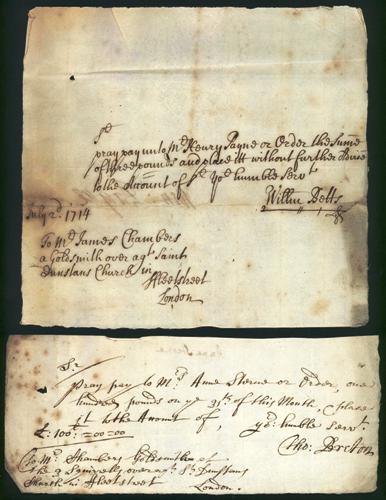 Sr
pray pay unto Mr Henry Payne or Order the Sume
of three pounds and place itt without further Advice
to the Account of Sr yor humble Servt
Willm Betts
July 2d. 1714
To Mr James Chambers
a Goldsmith over agt Saint
Dunstans Church in
ffleetstreet
London
Sr
Pray pay to Mrs Anne Sterne or Order, one
hundred pounds on ye 31th of this Month, & place
it to the Account of, yor humble Servt
£: 100: =00=00 Tho: Breton
To Mr Chambers Goldsmith att
the 3 Squirrells over agt St Dunstans
Church in ffleetstreet London.